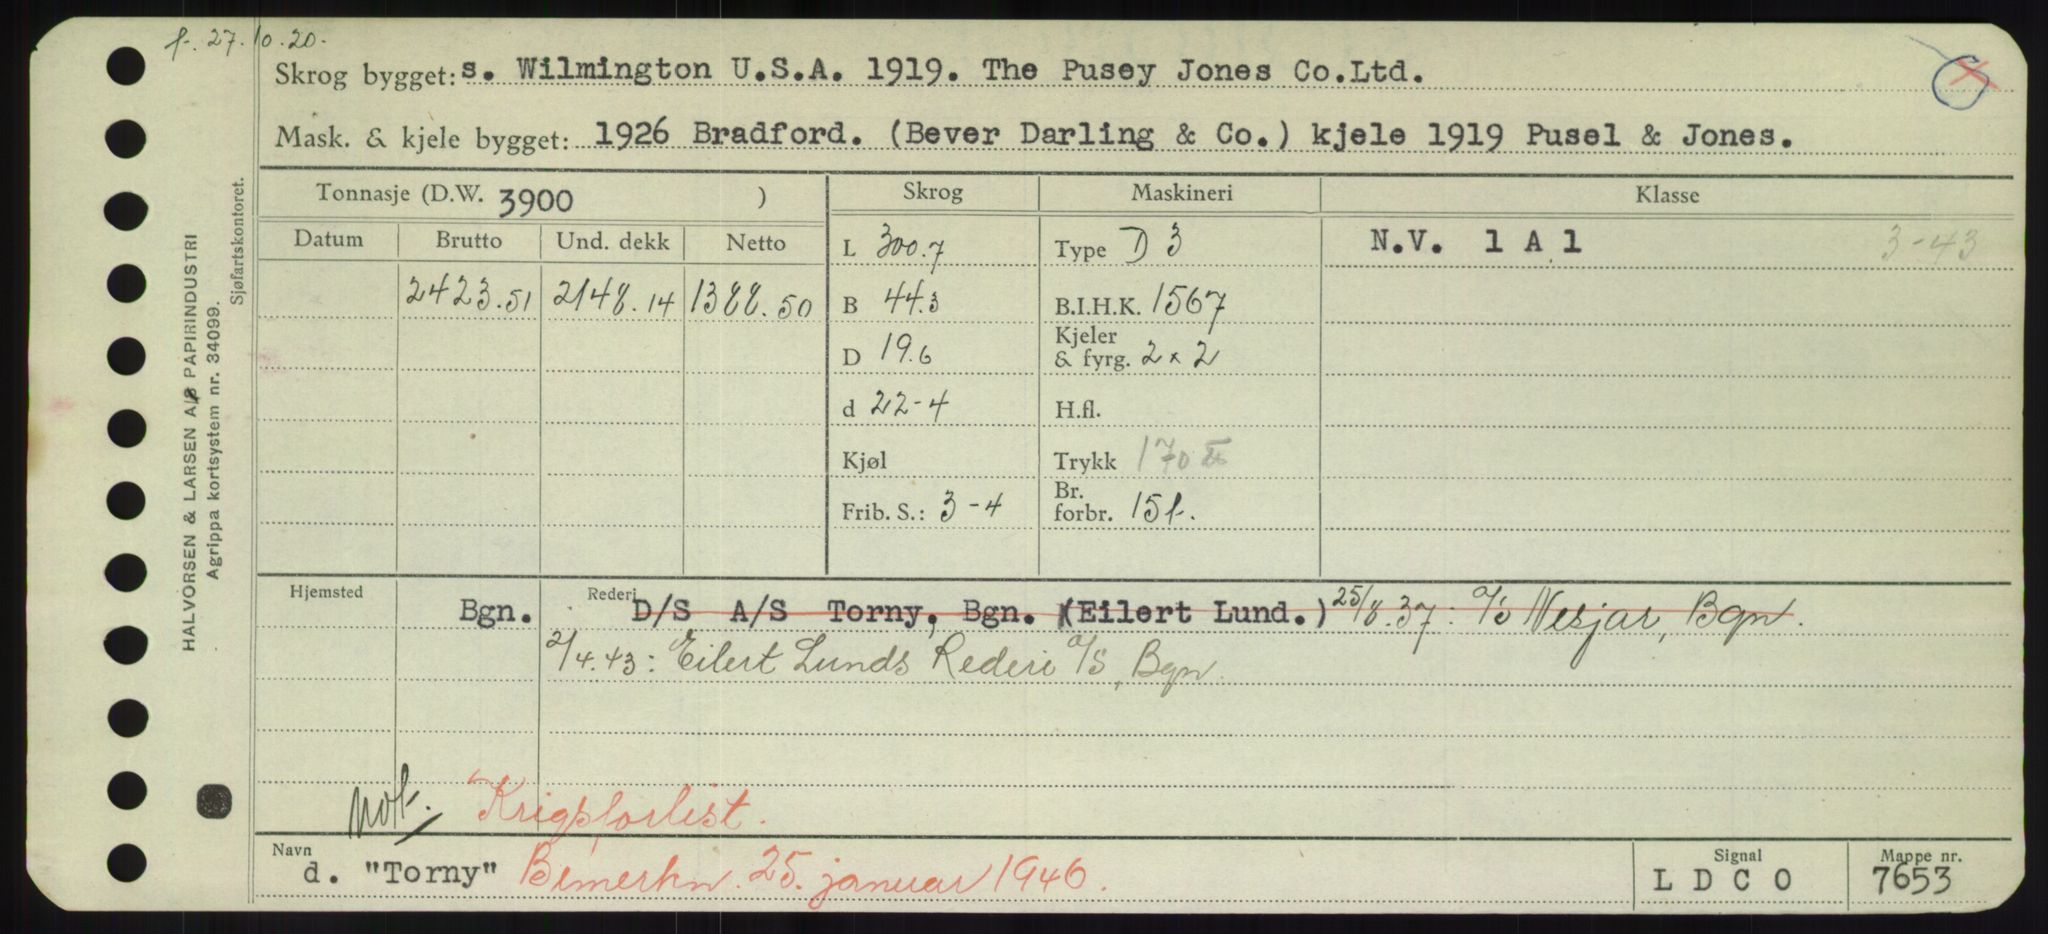 f. 27.10.20.
Skrog bygget: s. Wilmington U.S.A. 1919. The Pusey Jones Co.Ltd.
Mask. & kjele bygget: 1926 Bradford. (Bever Darling & Co.) kjele 1919 Pusel & Jones.
HALVORSEN & LARSEN A/S PAPIRINDUSTRI
Agrippa kortsystem nr. 34099.
Sjøfartskontoret.
Tonnasje (D.W. 3900 ) Skrog Maskineri Klasse
Datum Brutto Und. dekk Netto L 300.7 Type D 3 N.V. 1 A 1 3-43
2423.51 2148.14 1388.50 B 44.3 B.I.H.K. 1567
D 19.6 Kjeler & fyrg. 2 x 2
d 22-4 H.fl.
Kjøl Trykk 170
Frib. S.: 3-4 Br. forbr. 15 t.
Hjemsted Bgn. Rederi D/S A/S Torny, Bgn. (Eilert Lund.) 25/8.37: A/S Nesjar, Bgn.
2/4.43: Eilert Lunds Rederi A/S, Bgn.
not. Krigsforlist.
Navn d. "Torny" Bemerkn. 25. januar 1940. Signal L D C O Mappe nr. 7653